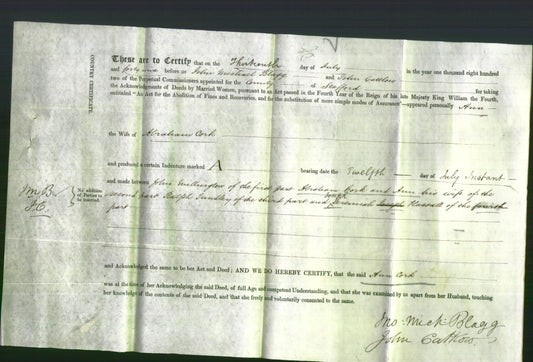 COUNTRY CERTIFICATE.
These are to Certify that on the Thirteenth day of July in the year one thousand eight hundred
and forty one before us John Michael Blagg and John
two of the Perpetual Commissioners appointed for the County of Stafford for taking
the Acknowledgments of Deeds by Married Women, pursuant to an Act passed in the Fourth Year of the Reign of his late Majesty King William the Fourth,
entituled "An Act for the Abolition of Fines and Recoveries, and for the substitution of more simple modes of Assurance"—appeared personally Ann
the Wife of Abraham Cork
and produced a certain Indenture marked A bearing date the Twelfth day of July Instant
and made between John of the first part Abraham Cork and Ann his wife of the
second part Ralph of the third part and Jeremiah of the fourth
part
JMB
J.C.
No addition
of Parties to
be inserted.
and Acknowledged the same to be her Act and Deed; AND WE DO HEREBY CERTIFY, that the said Ann Cork
was at the time of her Acknowledging the said Deed, of full Age and competent Understanding, and that she was examined by us apart from her Husband, touching
her knowledge of the contents of the said Deed, and that she freely and voluntarily consented to the same.
Jno. Mich Blagg
John